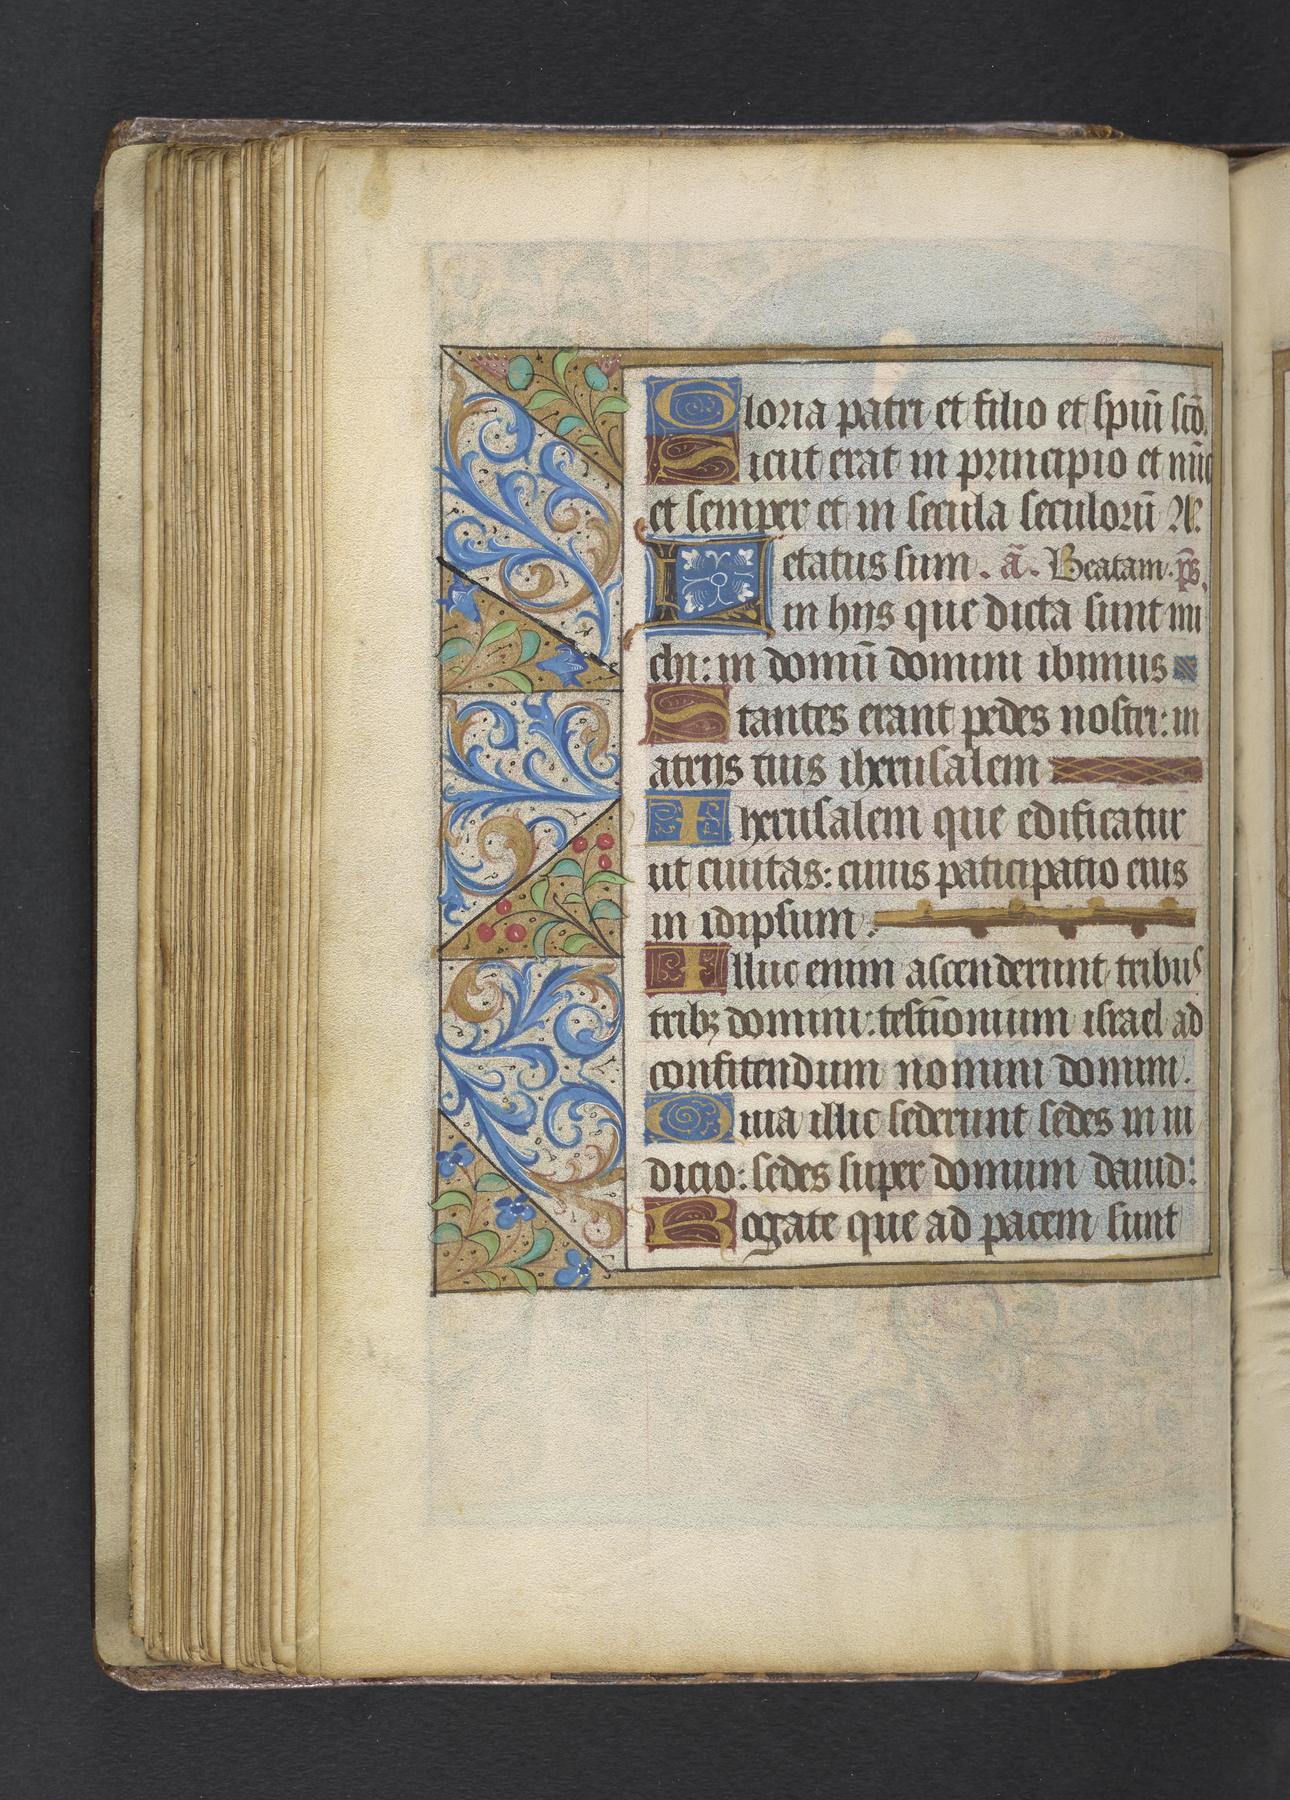 Gloria patri et filio et spiū scō.
Sicut erat in principio et nūc
et semper et in secula seculorū A.
Letatus sum. ā. Beatam. ps̄.
in hijs que dicta sunt mi
chi: in domū domini ibimus
Stantes erant pedes nostri: in
atrijs tuis iherusalem
Iherusalem que edificatur
ut ciuitas: cuius paticipatio eius
in idipsum.
Illuc enim ascenderunt tribus
tribꝫ domini: testīonium israel ad
confitendum nomini domini.
Quia illic sederunt sedes in iu
dicio: sedes super domum dauid:
Rogate que ad pacem sunt